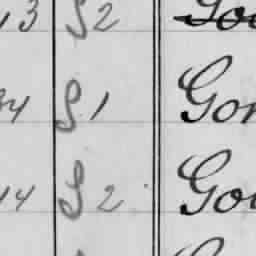 13 S2 Go
34 S1 Gor
14 S2 Go